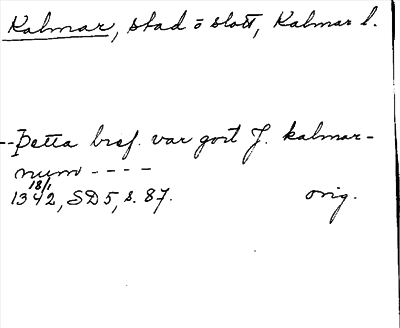 Kalmar, stad o slott, Kalmar l.
--Þetta bref. var gort J. kalmar-
num - - - -
18/1
1342, SD 5, s. 87. orig.